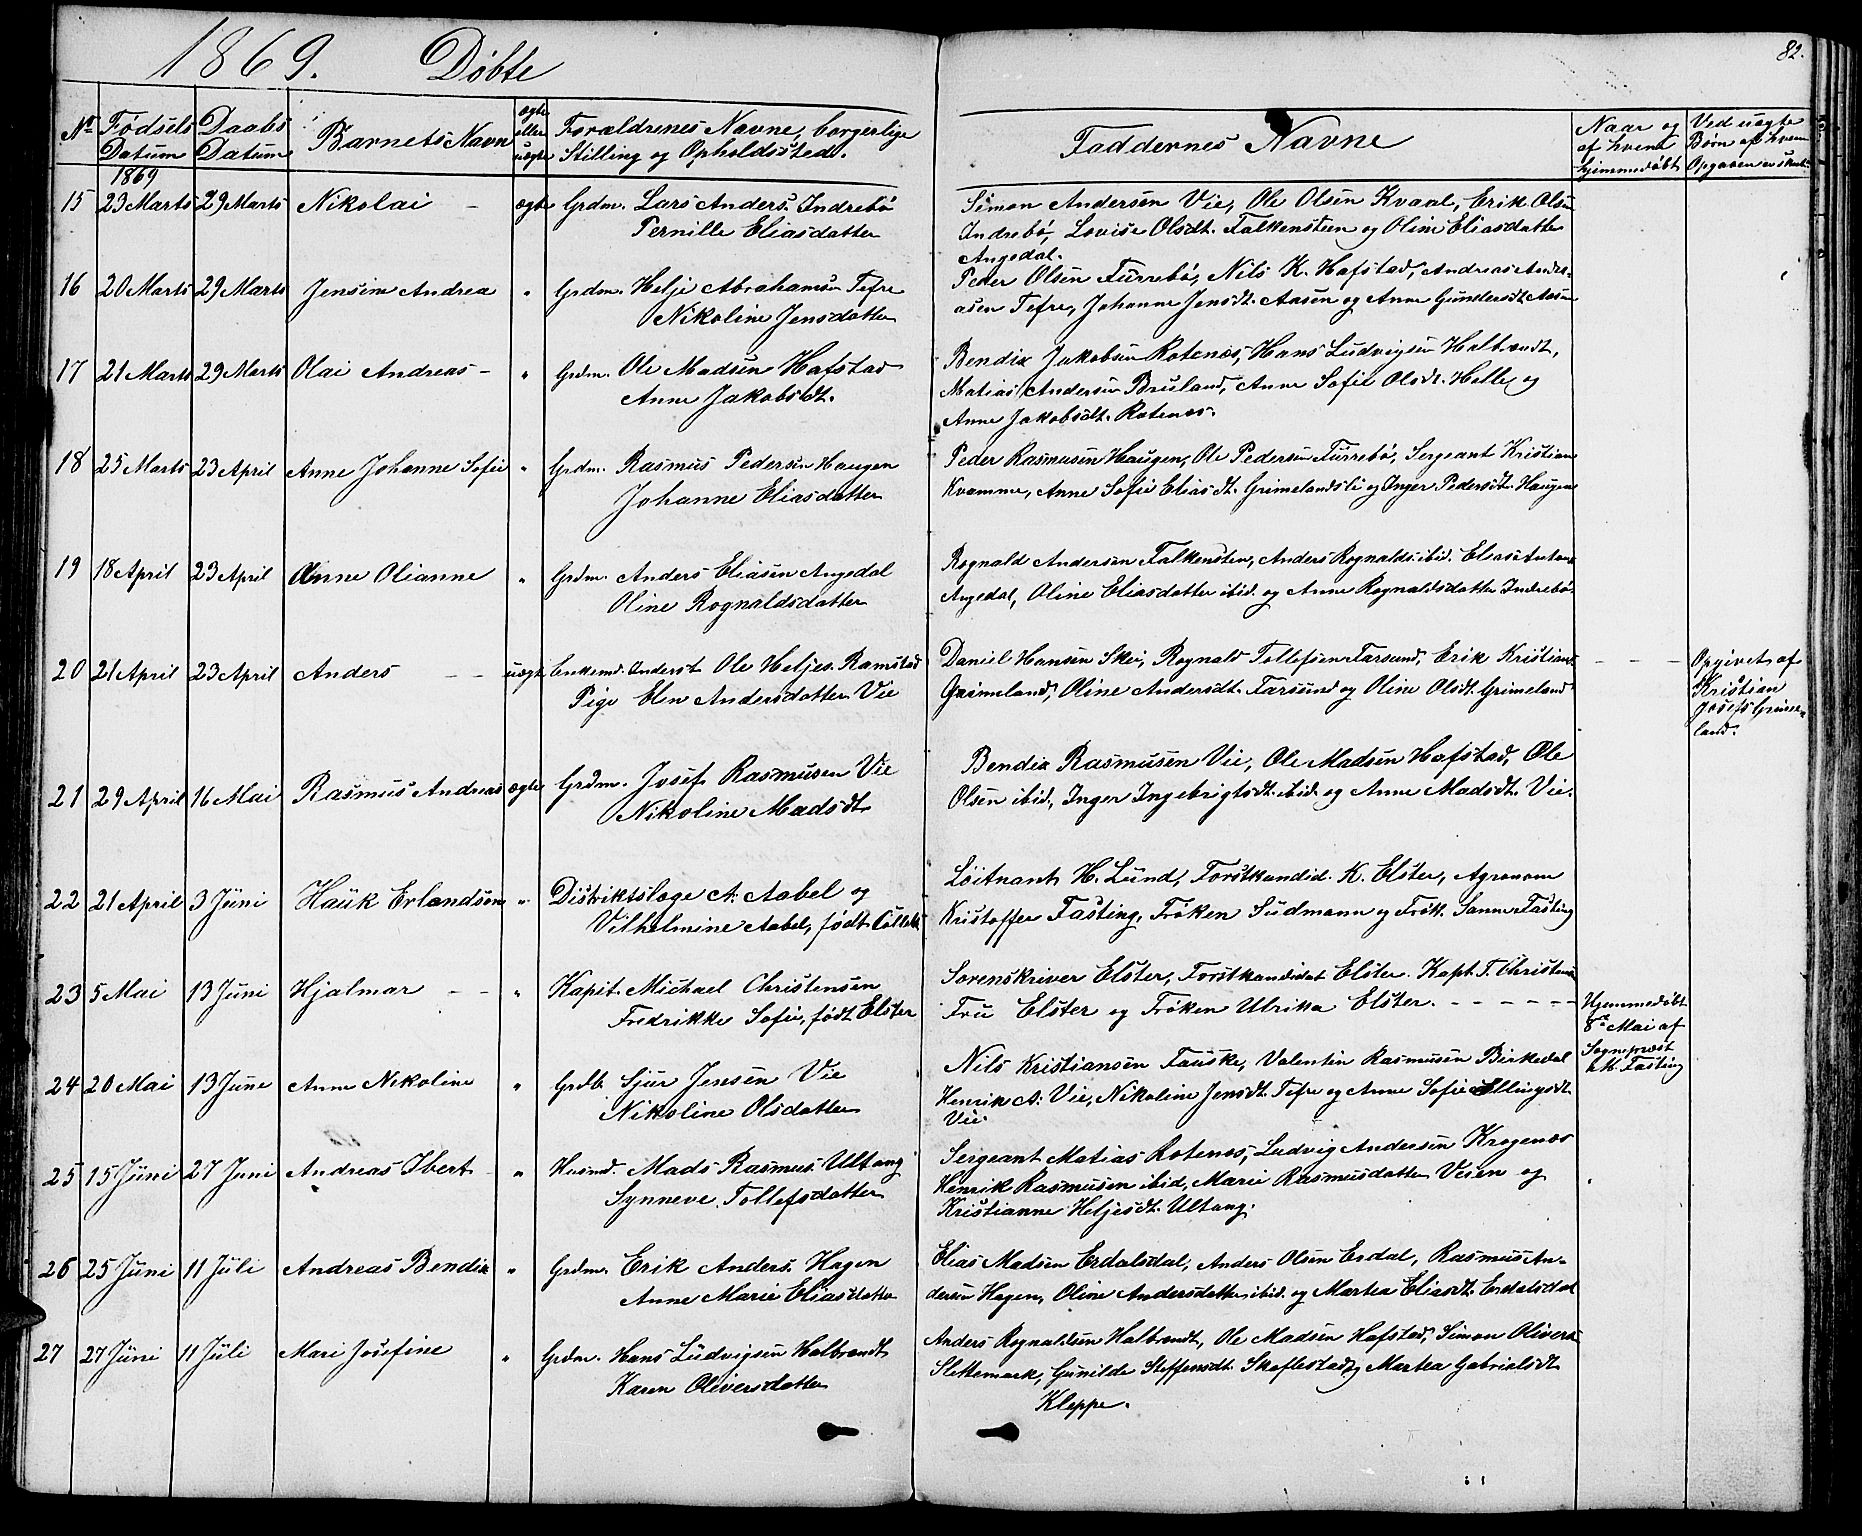 1869. Döbte
82.
No Fødsels Datum Daabs Datum Barnets Navn ægte eller uægte Forældrenes Navne, borgerlige Stilling og Opholdssted. Faddernes Navne Naar og af hvem hjemmedøbt Ved uægte Børn af hvem Opgaven er skeet
1869
15 23 Marts 29 Marts Nikolai – ægte Grdm. Lars Anders. Indrebö Simon Andersen Vie, Ole Olsen Kvaal, Erik Olsen
Pernille Eliasdatter Indrebö, Lovise Olsdt. Falkensteen og Oline Eliasdatter
Angedal.
16 20 Marts 29 Marts Jensine Andrea " Grdm. Helje Abrahamsen Tefre Peder Olsen Furrebö, Nils K. Hafstad, Andreas Andre-
Nikoline Jensdatter asen Tefre, Johanne Jensdt. Aasen og Anne Gundersdt. Aasen
17 21 Marts 29 Marts Olai Andreas – " Grdm. Ole Madsen Hafstad Bendix Jakobsen Rotenæs, Hans Ludvigsen Halbrendt,
Anne Jakobsdt. Matias Andersen Bruland, Anne Sofie Olsdt. Helle og
Anne Jakobsdt. Rotenæs.
18 25 Marts 23 April Anne Johanne Sofie " Grdm. Rasmus Pedersen Haugen Peder Rasmusen Haugen, Ole Pedersen Furrebö, Sergeant Kristian
Johanne Eliasdatter Kvamme, Anne Sofie Eliasdt. Grimelandsli og Inger Pedersdt. Haugen
19 18 April 23 April Anne Olianne " Grdm. Anders Eliasen Angedal Rognald Andersen Falkensten, Anders Rognalds. ibid. Elias Antons
Oline Rognaldsdatter Angedal, Oline Eliasdatter ibid. og Anne Rognaldsdatter Indrebö.
20 21 April 23 April Anders – – uægte Enkemd. Inderst Ole Heljes. Ramstad Daniel Hansen Skei, Rognald Tollefsen Farsund, Erik Kristians. – – – Opgivet af
Pige Elen Andersdatter Vie Grimeland, Oline Andersdt. Farsund og Oline Olsdt. Grimeland Kristian
Josefs Grime-
land.
21 29 April 16 Mai Rasmus Andreas ægte Grdm. Josef Rasmusen Vie Bendix Rasmusen Vie, Ole Madsen Hafstad, Ole
Nikoline Madsdt. Olsen ibid., Inger Ingebrigtsdt. ibid. og Anne Madsdt. Vie.
22 21 April 3 Juni Hauk Erlandsen " Distriktslæge A. Aabel og Löitnant H. Lund, Forstkandid. K. Elster, Agronom
Vilhelmine Aabel, född Kristoffer Fasting, Fröken Sudmann og Frök. Sanne Fasting
23 5 Mai 13 Juni Hjalmar – – " Kapit. Michael Christensen Sorenskriver Elster, Forstkandidat Elster. Kapt. T. Christensen
Fredrikke Sofie, född Elster Fru Elster og Fröken Ulrika Elster. – – – – – – Hjemmedöbt
8de Mai af
Sognepræst
Fasting
24 20 Mai 13 June Anne Nikoline " Grdb. Sjur Jensen Vie Nils Kristiansen Fauske, Valentin Rasmusen Birkedal
Nikoline Olsdatter Henrik A. Vie, Nikoline Jensdt. Tefre og Anne Sofie Ellingsdt.
Vie.
25 15 Juni 27 Juni Andreas Ibert " Husmd. Mads Rasmus. Ultang Sergeant Matias Rotenæs, Ludvig Andersen Krogenæs
Synneve Tollefsdatter Henrik Rasmusen ibid, Marie Rasmusdatter Veien og
Kristianne Heljesdt. Ultang.
26 25 Juni 11 Juli Andreas Bendix " Grdm. Erik Anders. Hagen Elias Madsen Erdalsdal, Anders Olsen Erdal, Rasmus An-
Anne Marie Eliasdatter dersen Hagen, Oline Andersdatter ibid. og Martea Eliasdt. Erdalsdal
27 27 Juni 11 Juli Mari Josefine " Grdm. Hans Ludvigsen Halbrendt Anders Rognaldsen Halbrendt, Ole Madsen Hafstad, Simon Olivers.
Karen Oliversdatter Slettemark, Gunilde Steffensdt. Skaflestad og Martea Gabrielsdt.
Kleppe.